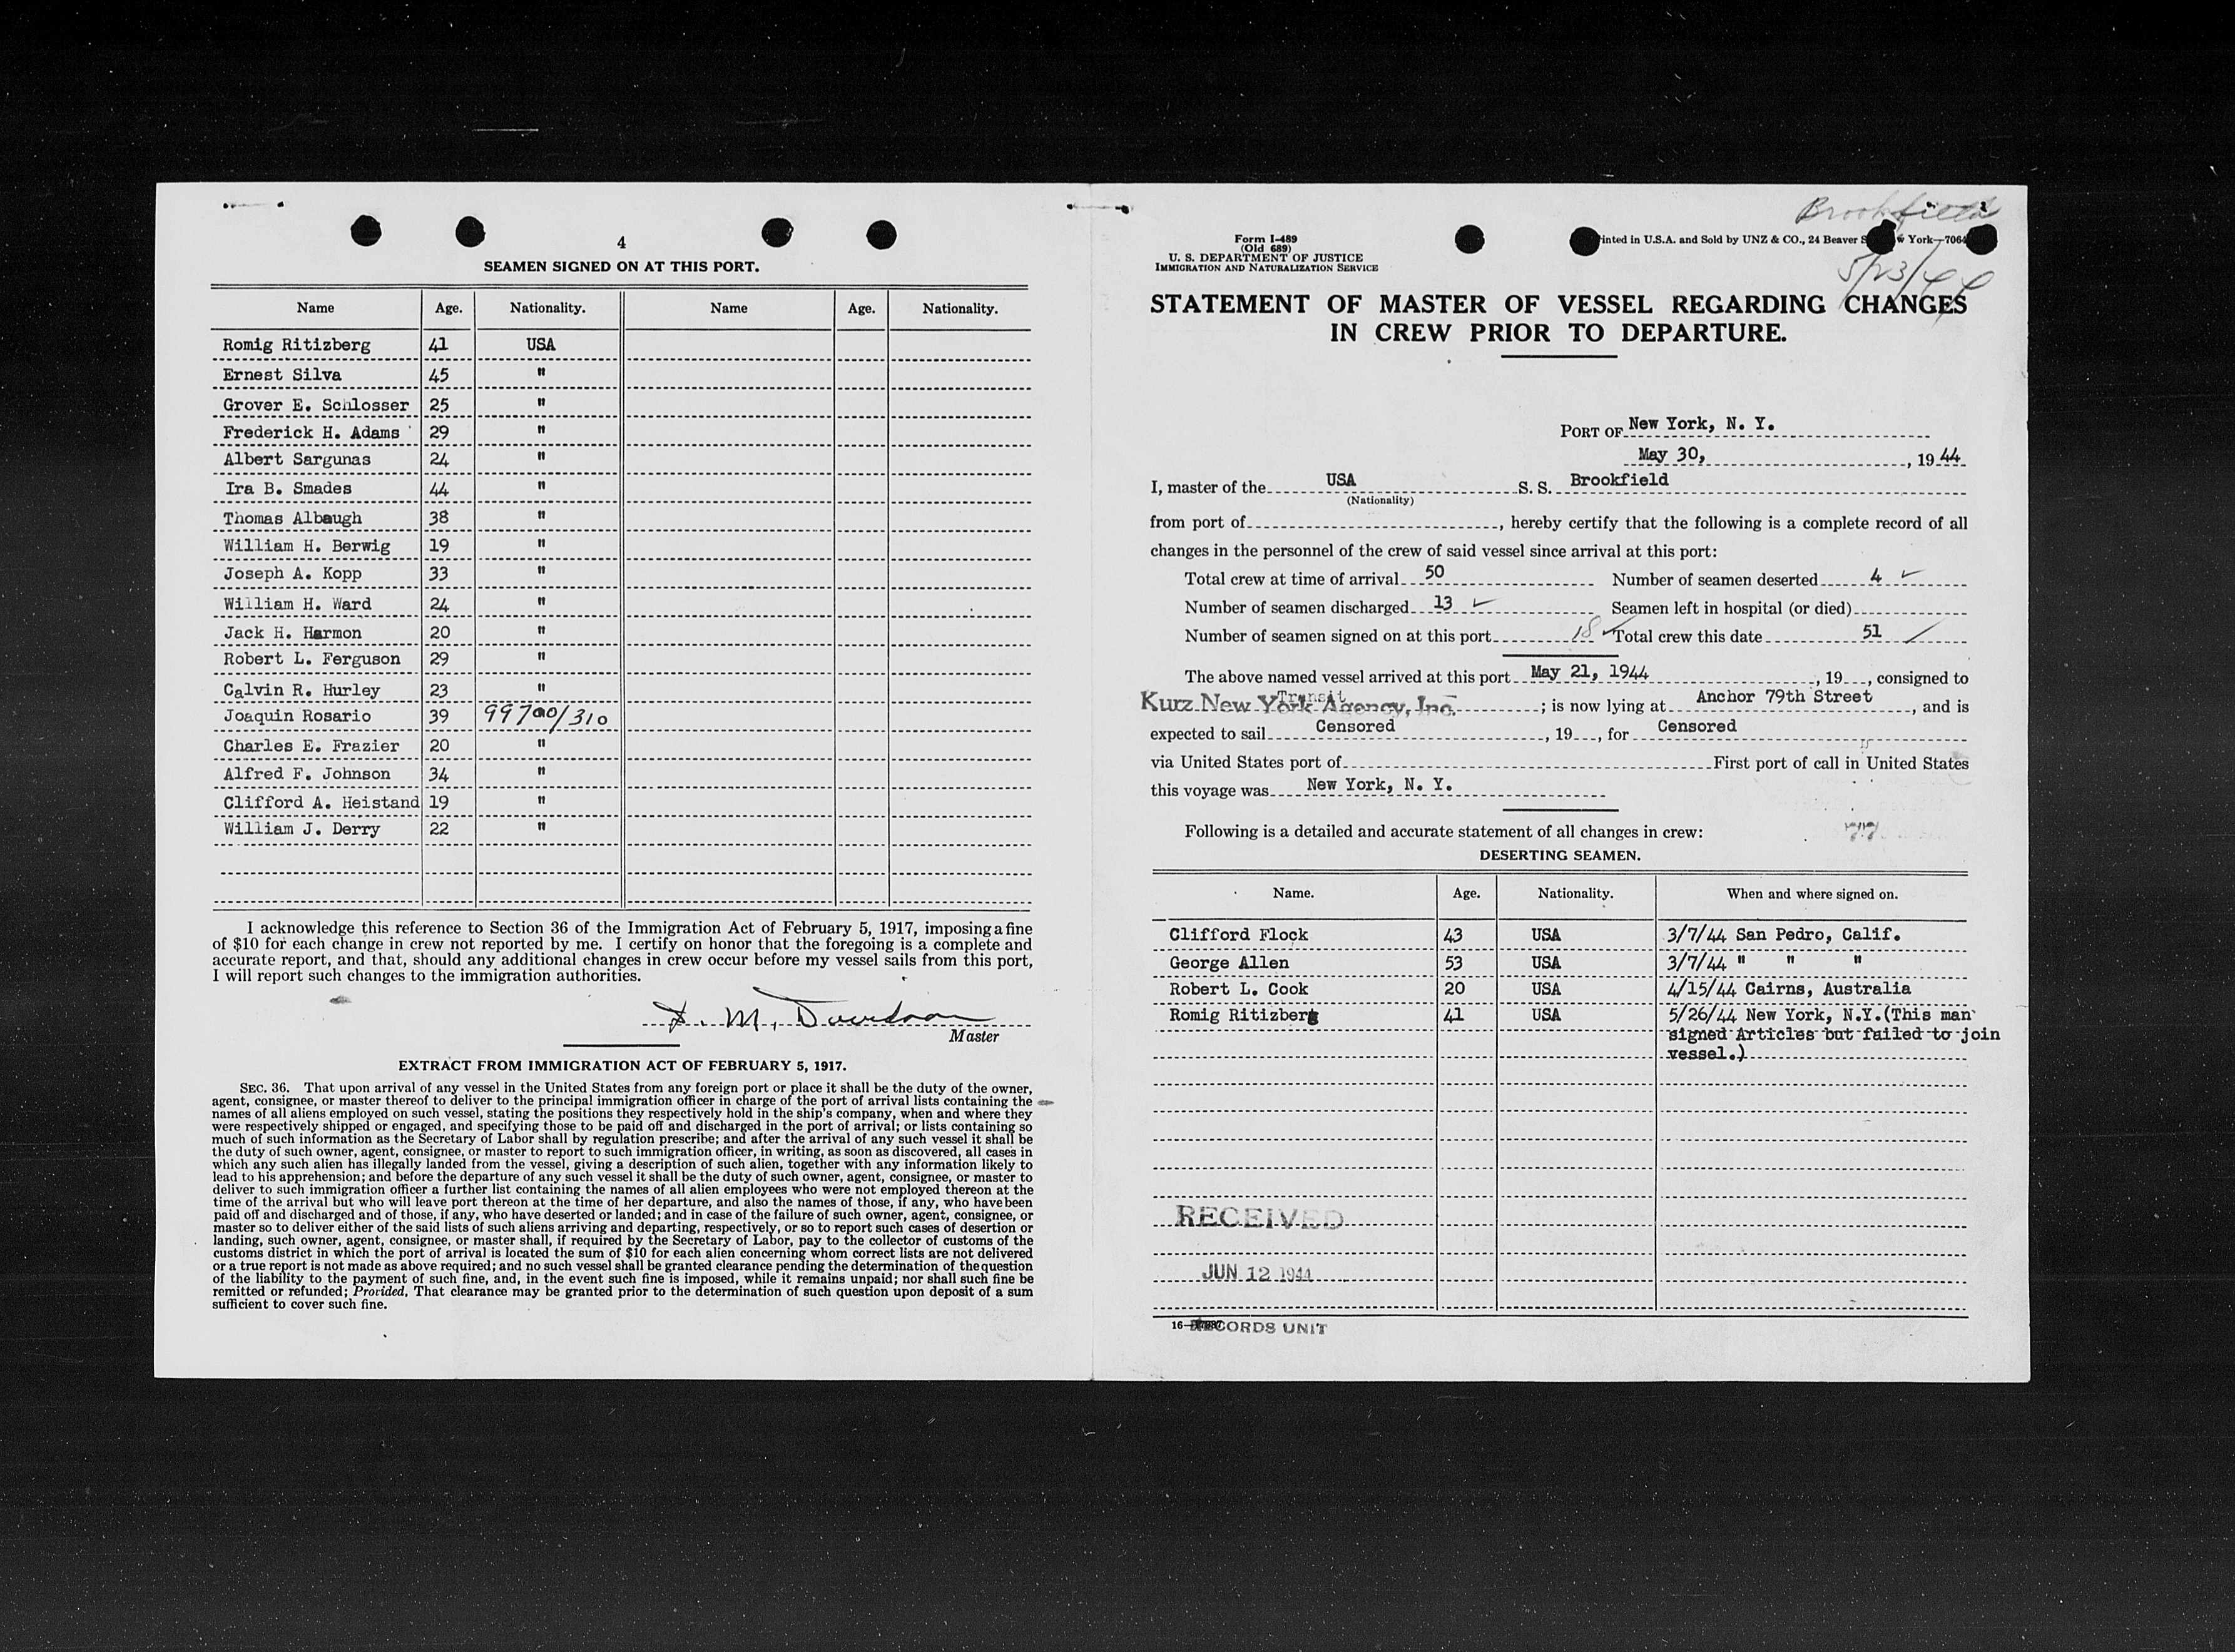 4
SEAMEN SIGNED ON AT THIS PORT.
Name Age. Nationality. Name Age. Nationality.
Romig Ritizberg 41 USA
Ernest Silva 45 "
Grover E. Schlosser 25 "
Frederick H. Adams 29 "
Albert Sargunas 24 "
Ira B. Smades 44 "
Thomas Albaugh 38 "
William H. Berwig 19 "
Joseph A. Kopp 33 "
William H. Ward 24 "
Jack H. Harmon 20 "
Robert L. Ferguson 29 "
Calvin R. Hurley 23 "
Joaquin Rosario 39 99700/310
Charles E. Frazier 20 "
Alfred F. Johnson 34 "
Clifford A. Heistand 19 "
William J. Derry 22 "
I acknowledge this reference to Section 36 of the Immigration Act of February 5, 1917, imposing a fine
of $10 for each change in crew not reported by me. I certify on honor that the foregoing is a complete and
accurate report, and that, should any additional changes in crew occur before my vessel sails from this port,
I will report such changes to the immigration authorities.
Master
EXTRACT FROM IMMIGRATION ACT OF FEBRUARY 5, 1917.
SEC. 36. That upon arrival of any vessel in the United States from any foreign port or place it shall be the duty of the owner,
agent, consignee, or master thereof to deliver to the principal immigration officer in charge of the port of arrival lists containing the
names of all aliens employed on such vessel, stating the positions they respectively hold in the ship's company, when and where they
were respectively shipped or engaged, and specifying those to be paid off and discharged in the port of arrival; or lists containing so
much of such information as the Secretary of Labor shall by regulation prescribe; and after the arrival of any such vessel it shall be
the duty of such owner, agent, consignee, or master to report to such immigration officer, in writing, as soon as discovered, all cases in
which any such alien has illegally landed from the vessel, giving a description of such alien, together with any information likely to
lead to his apprehension; and before the departure of any such vessel it shall be the duty of such owner, agent, consignee, or master to
deliver to such immigration officer a further list containing the names of all alien employees who were not employed thereon at the
time of the arrival but who will leave port thereon at the time of her departure, and also the names of those, if any, who have been
paid off and discharged and of those, if any, who have deserted or landed; and in case of the failure of such owner, agent, consignee, or
master so to deliver either of the said lists of such aliens arriving and departing, respectively, or so to report such cases of desertion or
landing, such owner, agent, consignee, or master shall, if required by the Secretary of Labor, pay to the collector of customs of the
customs district in which the port of arrival is located the sum of $10 for each alien concerning whom correct lists are not delivered
or a true report is not made as above required; and no such vessel shall be granted clearance pending the determination of the question
of the liability to the payment of such fine, and, in the event such fine is imposed, while it remains unpaid; nor shall such fine be
remitted or refunded; Provided, That clearance may be granted prior to the determination of such question upon deposit of a sum
sufficient to cover such fine.
Brookfield
5/23/44
Form I-489
(Old 689)
U. S. DEPARTMENT OF JUSTICE
IMMIGRATION AND NATURALIZATION SERVICE
inted in U.S.A. and Sold by UNZ & CO., 24 Beaver S w York—706
STATEMENT OF MASTER OF VESSEL REGARDING CHANGES
IN CREW PRIOR TO DEPARTURE.
PORT OF New York, N. Y.
May 30, , 19 44
I, master of the USA S. S. Brookfield
(Nationality)
from port of , hereby certify that the following is a complete record of all
changes in the personnel of the crew of said vessel since arrival at this port:
Total crew at time of arrival 50 Number of seamen deserted 4 ✓
Number of seamen discharged 13 ✓ Seamen left in hospital (or died)
Number of seamen signed on at this port 18 ✓ Total crew this date 51 /
The above named vessel arrived at this port May 21, 1944 , 19 , consigned to
Kurz New York Agency, Inc. Transit ; is now lying at Anchor 79th Street , and is
expected to sail Censored , 19 , for Censored
via United States port of First port of call in United States
this voyage was New York, N. Y.
Following is a detailed and accurate statement of all changes in crew: 77
DESERTING SEAMEN.
Name. Age. Nationality. When and where signed on.
Clifford Flock 43 USA 3/7/44 San Pedro, Calif.
George Allen 53 USA 3/7/44 " " "
Robert L. Cook 20 USA 4/15/44 Cairns, Australia
Romig Ritizberg 41 USA 5/26/44 New York, N.Y.(This man
signed Articles but failed to join
vessel.)
RECEIVED
JUN 12 1944
RECORDS UNIT